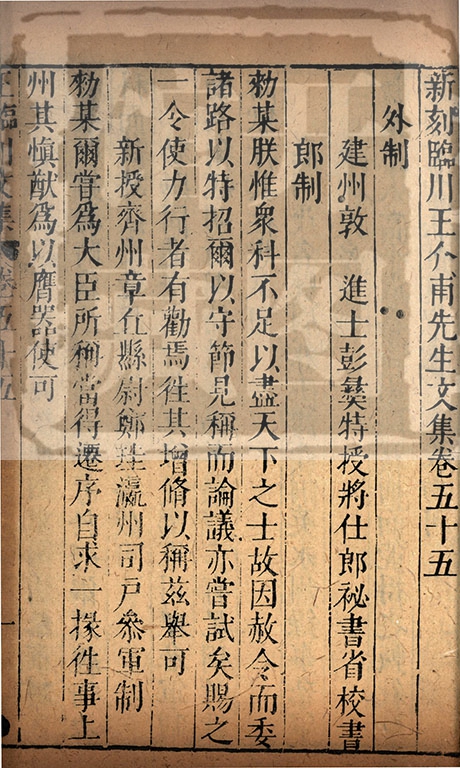 新刻臨川王介甫先生文集卷五十五
外制
建州敦　進士彭彛特授將仕郎祕書省校書
郎制
勑某朕惟衆科不足以盡天下之士故因赦令而委
諸路以特招爾以守節見稱而論議亦嘗試矣賜之
一令使力行者有勸焉徃其增脩以稱茲舉可
新授齊州章丘縣尉鄭珪瀛州司戸叅軍制
勑某爾嘗爲大臣所稱當得遷序自求一掾徃事上
州其愼猷爲以膺器使可
王臨川文集 卷五十五 一